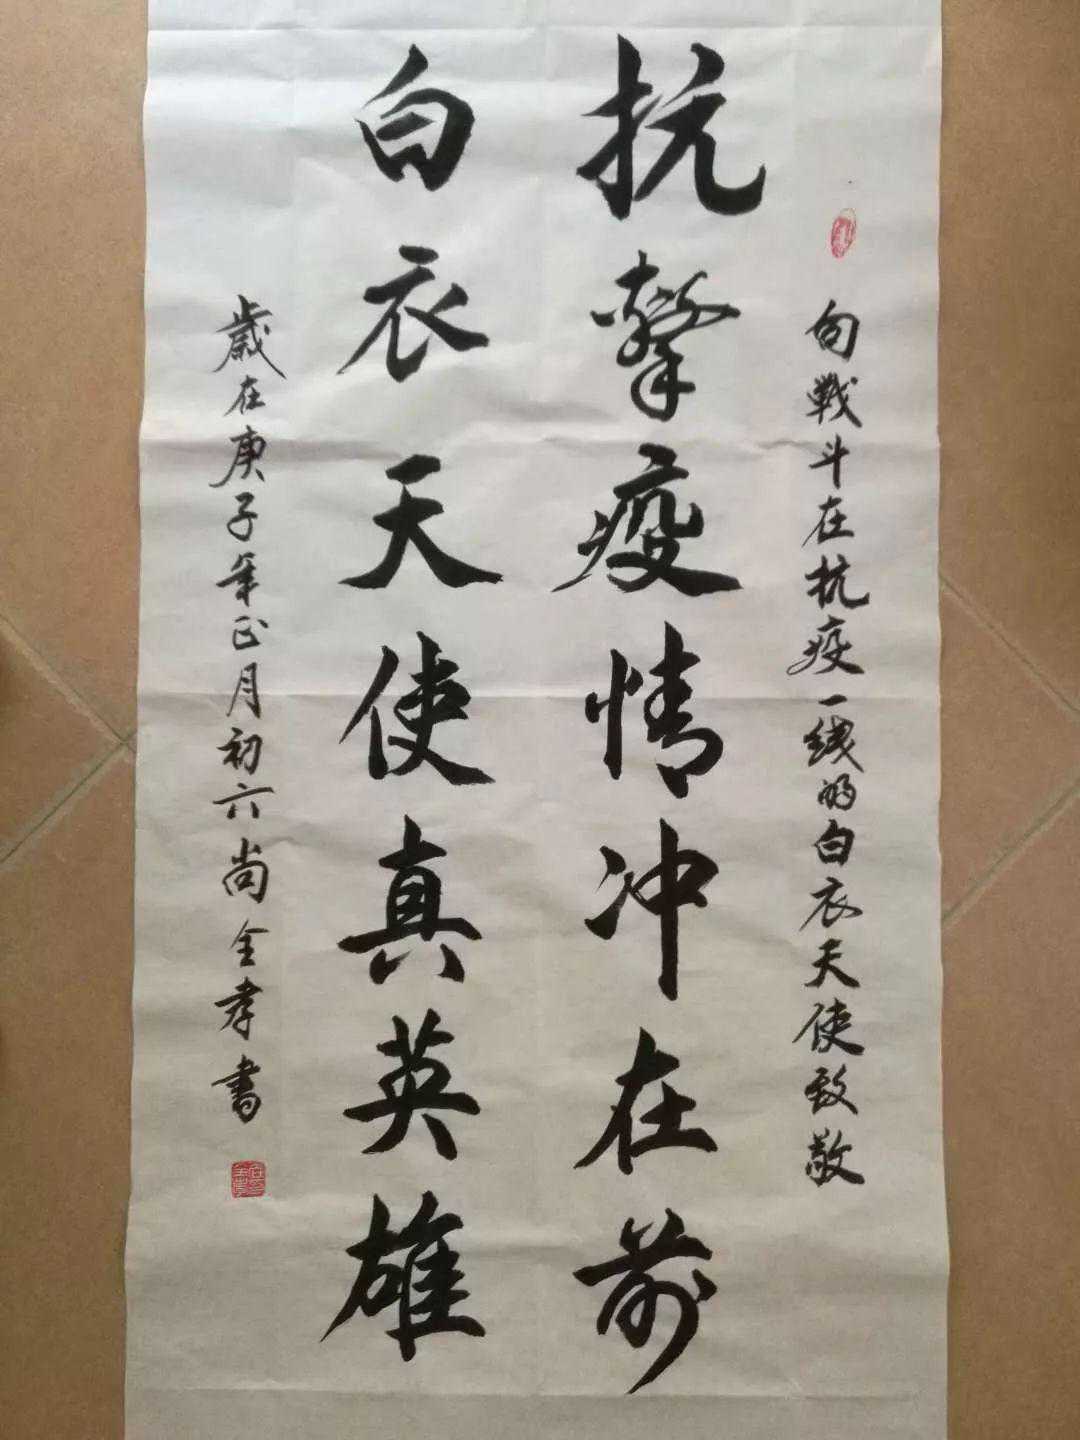 向戰斗在抗疫一线的白衣天使致敬
抗擊疫情冲在前
白衣天使真英雄
歲在庚子年正月初六尚全孝書